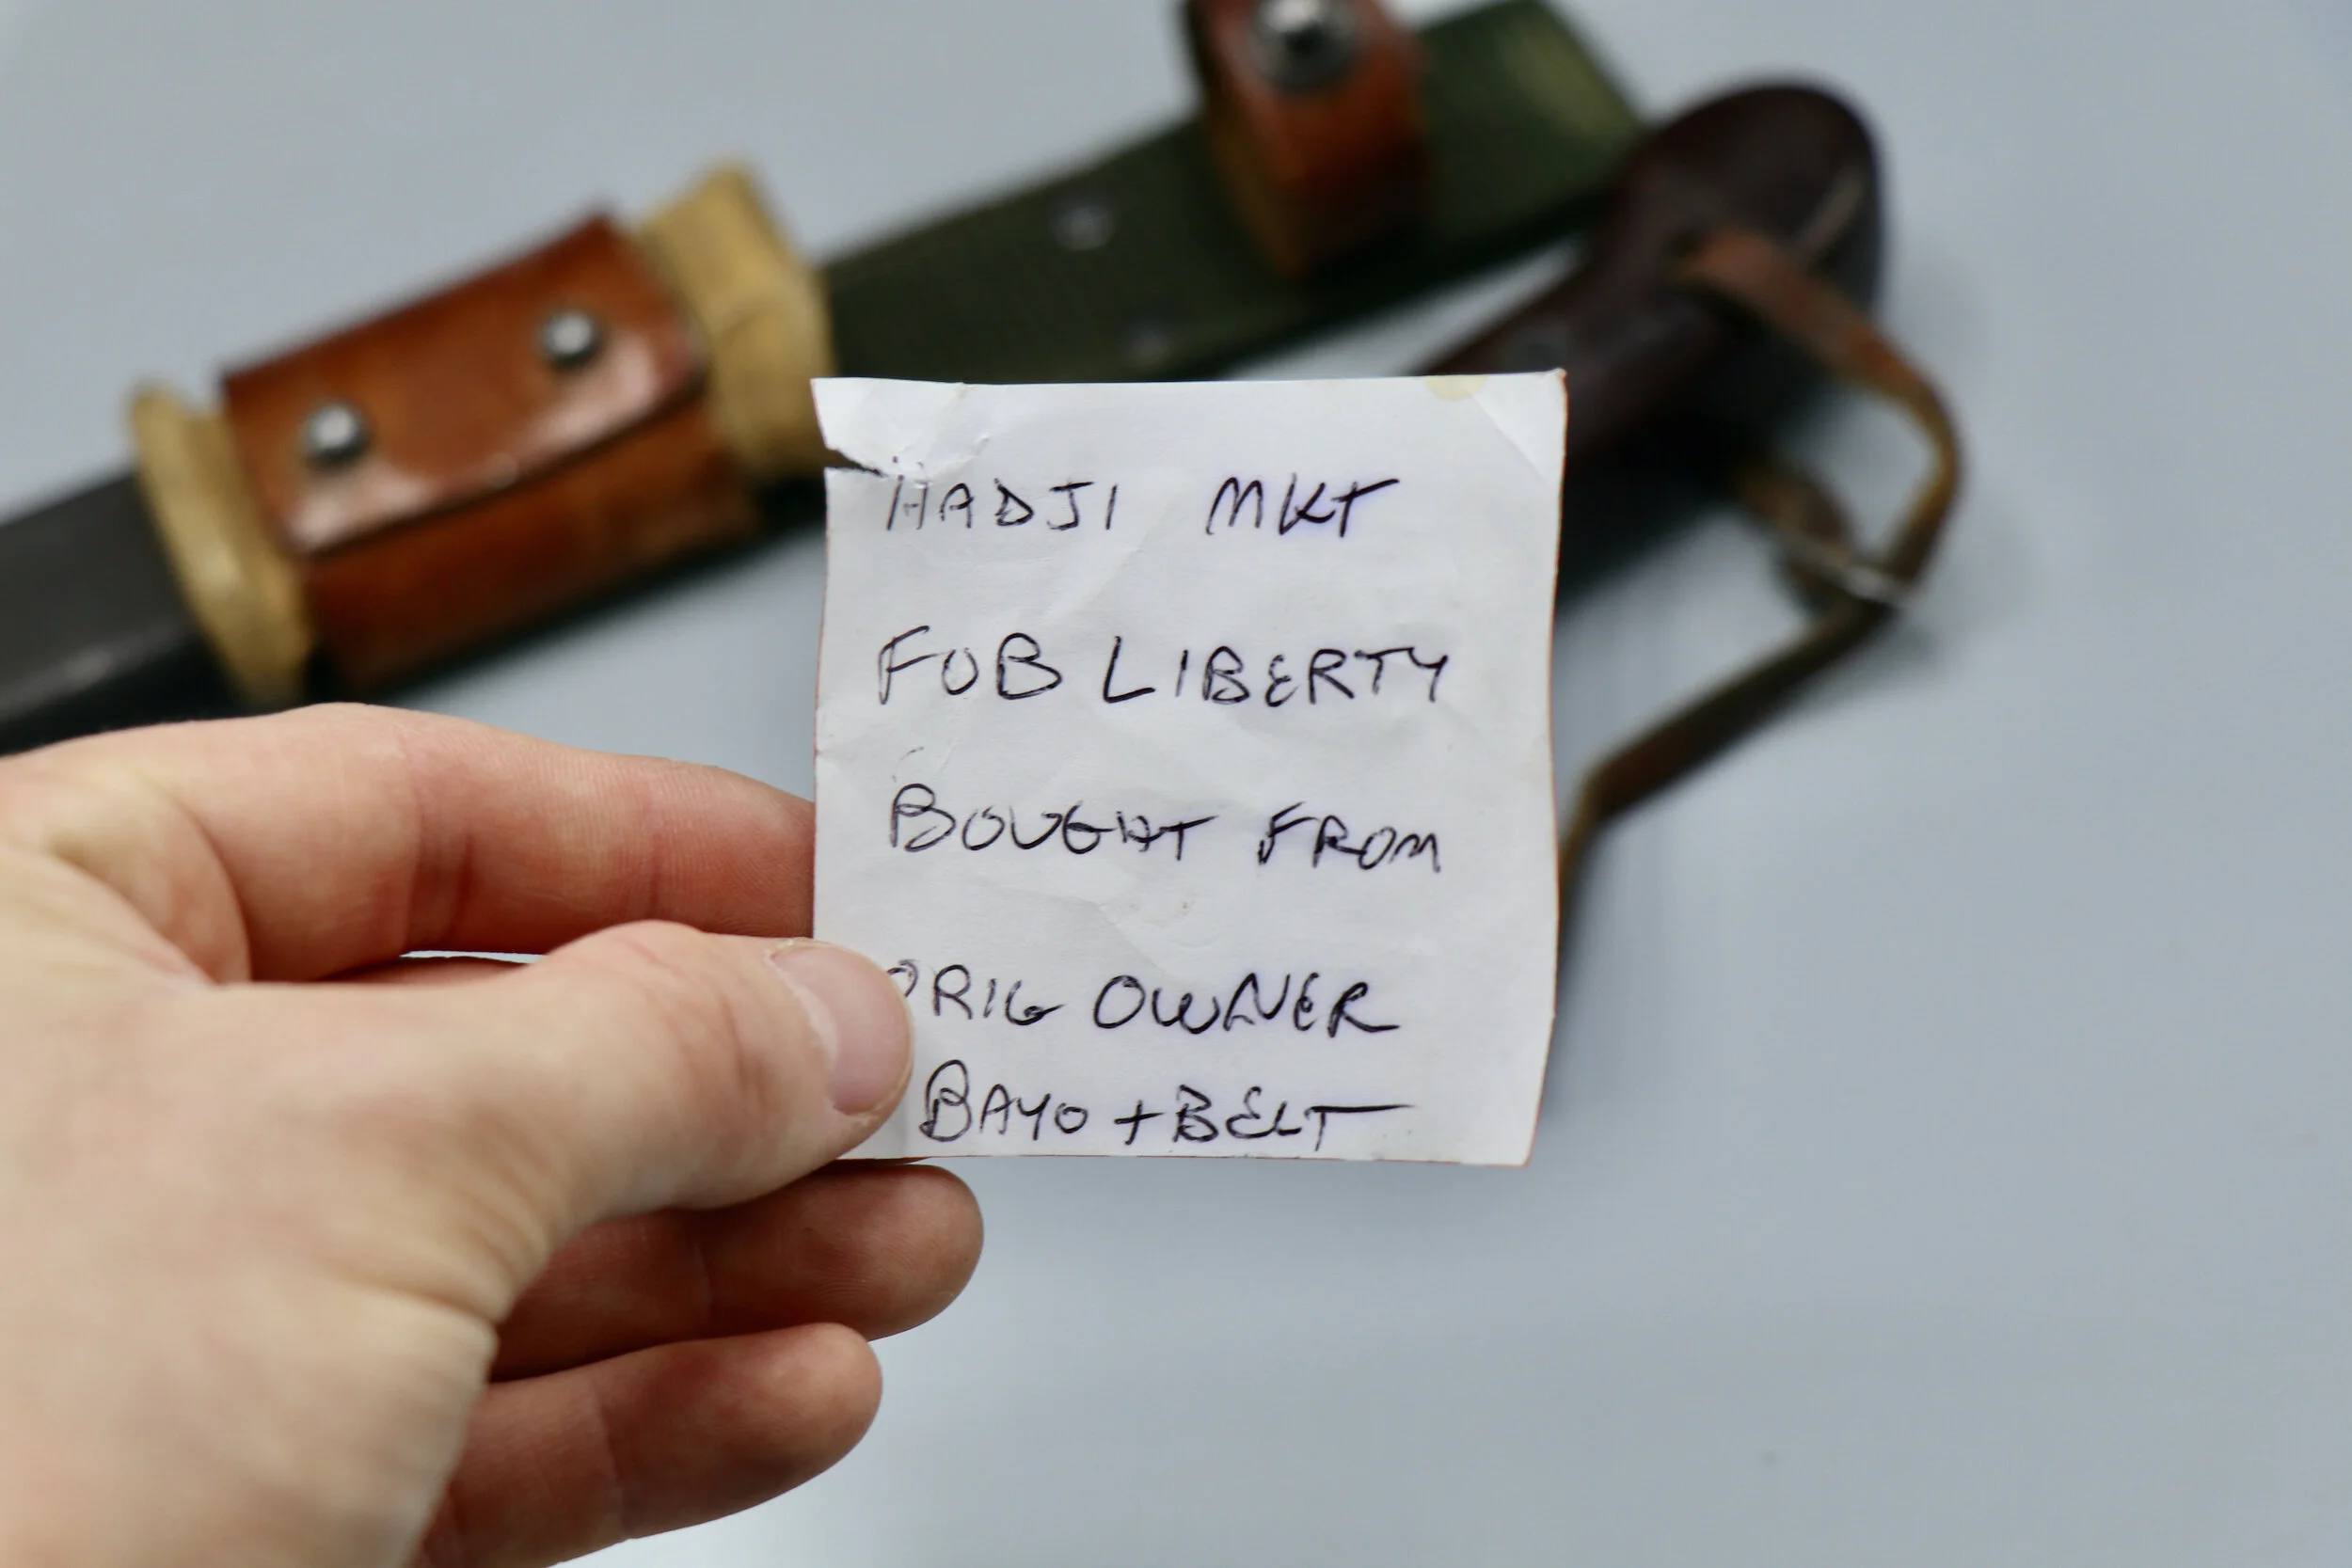 HADJI MKT
FOB LIBERTY
BOUGHT FROM
ORIG OWNER
BAYO + BELT